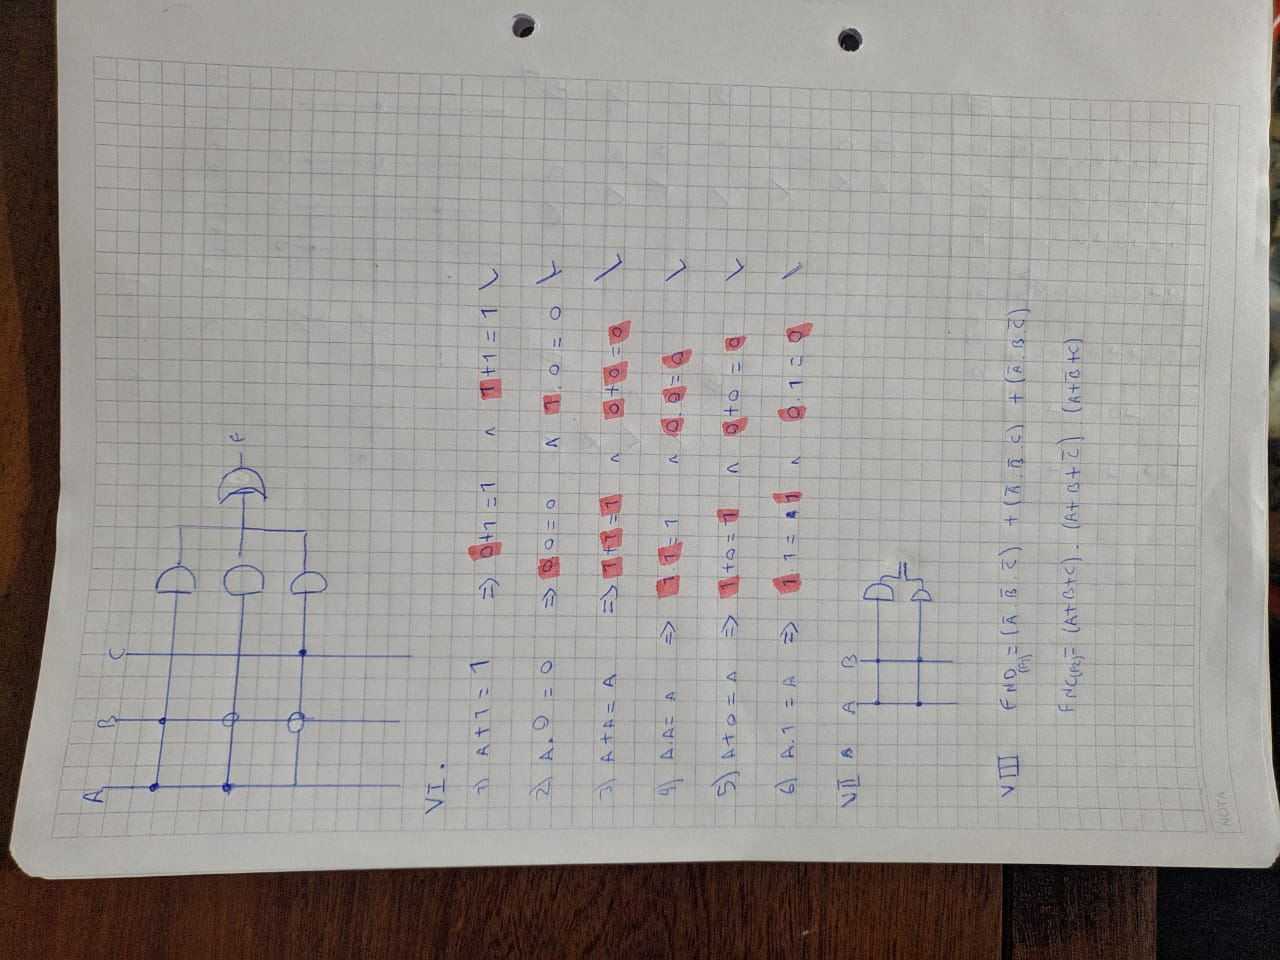 A
B
C
F
VI.
1) A+1=1 => 0+1=1 ^ 1+1=1 ✓
2) A.0=0 => 0.0=0 ^ 1.0=0 ✓
3) A+A=A => 1+1=1 ^ 0+0=0 ✓
4) AA=A => 1.1=1 ^ 0.0=0 ✓
5) A+0=A => 1+0=1 ^ 0+0=0 ✓
6) A.1=A => 1.1=1 ^ 0.1=0 ✓
VII
A B
VIII FND(F1)=(A̅.B̅.C̅)+(A̅.B̅.C)+(A̅.B.C̅)
FNC(F2)=(A+B+C).(A+B+C̅)(A+B̅+C)
NOTA